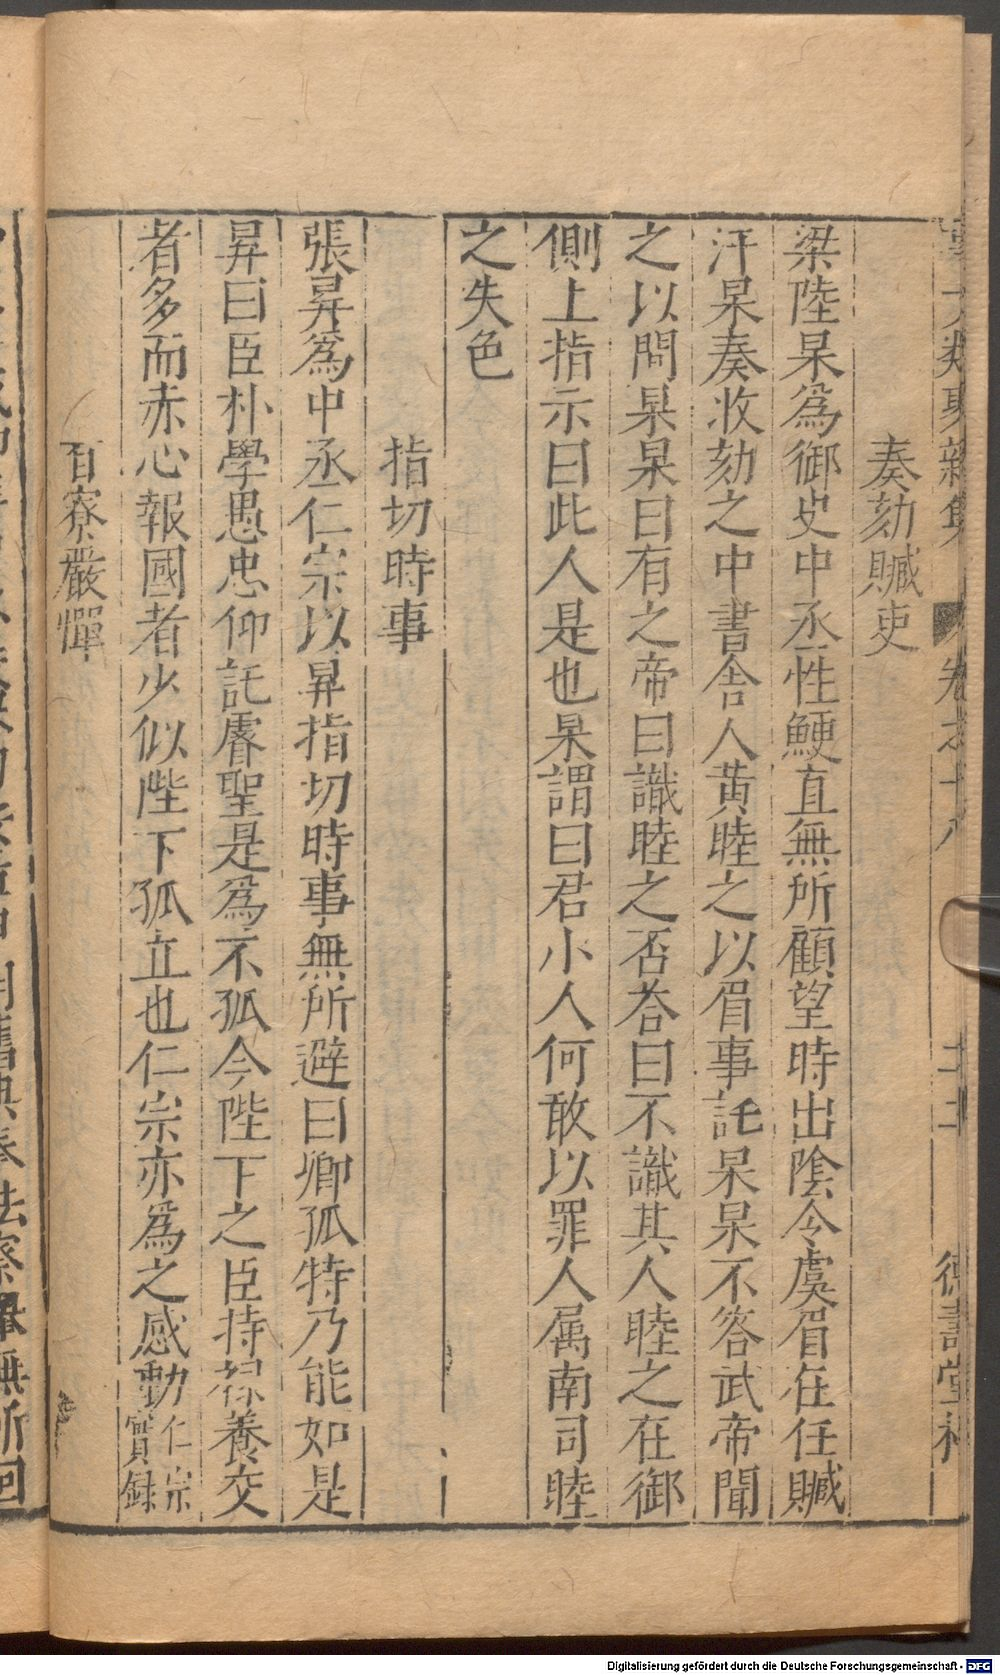 奏劾贓吏
梁陸杲為御史中丞性鯁直無所顧望時出陰令虞眉在任贓
汗杲奏收劾之中書舍人黃睦之以眉事託杲杲不答武帝聞
之以問杲杲曰有之帝曰識睦之否荅曰不識其人睦之在御
側上指示曰此人是也杲謂曰君小人何敢以罪人属南司睦
之失色
指切時事
張昇為中丞仁宗以昇指切時事無所避曰卿孤特乃能如是
昇曰臣朴學愚忠仰託睿聖是為不孤今陛下之臣持祿養交
者多而赤心報國者少似陛下孤立也仁宗亦為之感動仁宗實録
百寮嚴憚
Digitalisierung gefördert durch die Deutsche Forschungsgemeinschaft - DFG